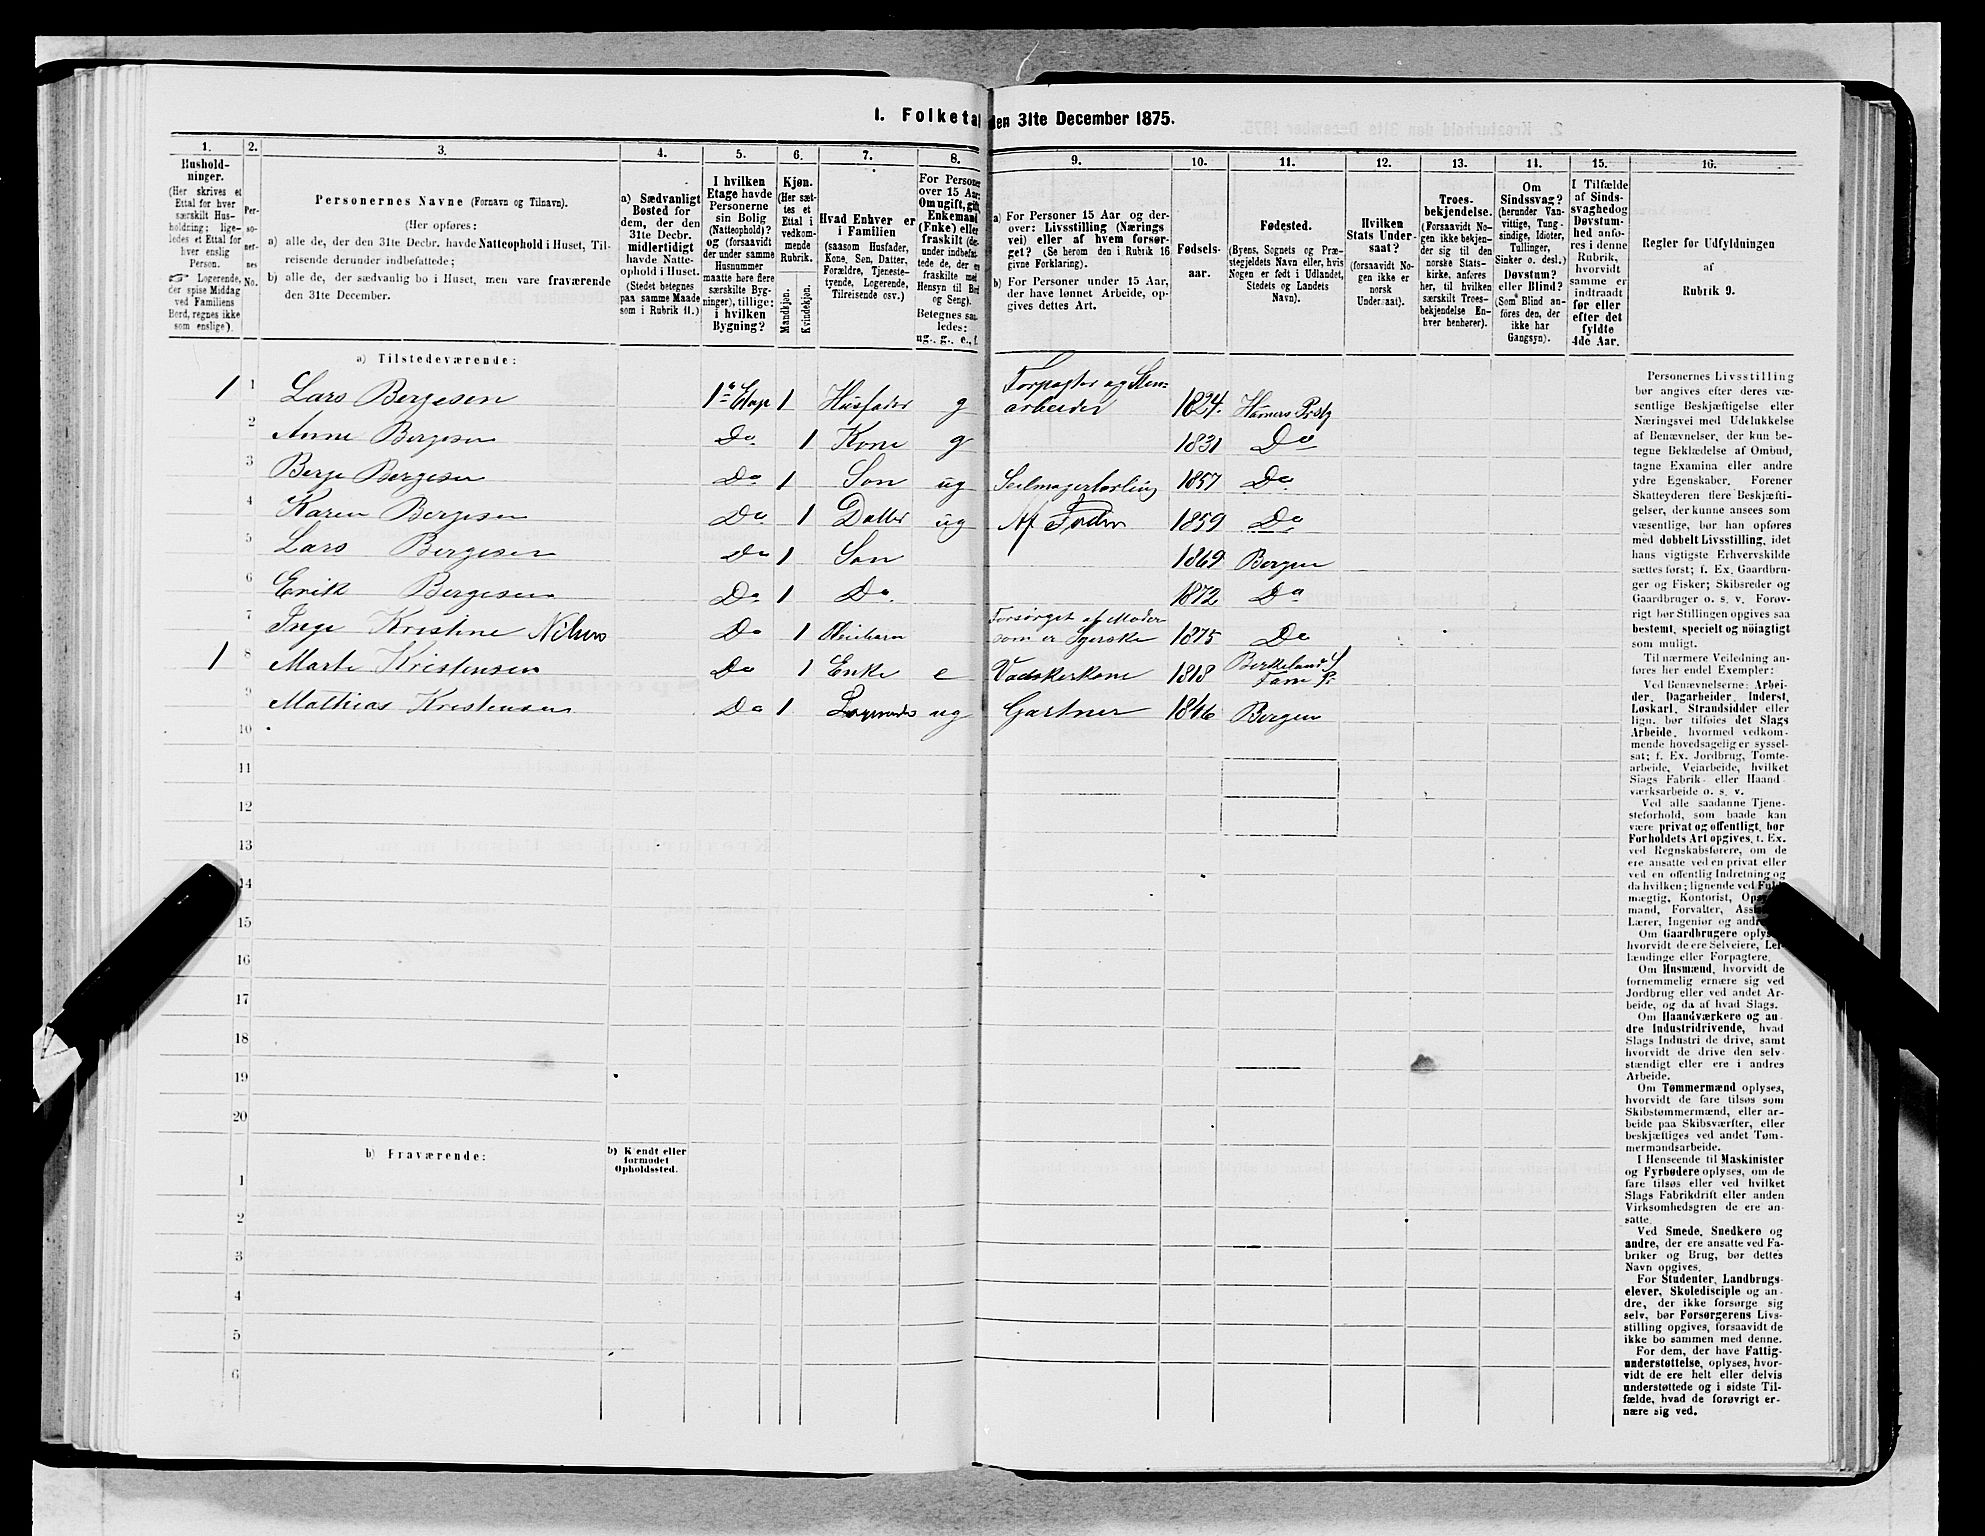 1. Folketa den 31te December 1875.
1. 2. 3. 4. 5. 6. 7. 8. 9. 10. 11. 12. 13. 14. 15. 16.
Hushold-
ninger.
(Her skrives et
Ettal for hver
særskilt Hus-
holdning; lige-
ledes et Ettal for
hver enslig
Person.
☞ Logerende,
der spise Middag
ved Familiens
Bord, regnes ikke
som enslige).
Per-
so-
ner-
nes
No.
Personernes Navne (Fornavn og Tilnavn).
(Her opføres:
a) alle de, der den 31te Decbr. havde Natteophold i Huset, Til-
reisende derunder indbefattede;
b) alle de, der sædvanlig bo i Huset, men vare fraværende
den 31te December.
a) Sædvanligt
Bosted for
dem, der den
31te Decbr.
midlertidigt
havde Natte-
ophold i Huset.
(Stedet betegnes
paa samme Maade
som i Rubrik 11.)
I hvilken
Etage havde
Personerne
sin Bolig
(Natteophold)?
og (forsaavidt
der under samme
Husnummer
maatte høre flere
særskilte Byg-
ninger), tillige:
i hvilken
Bygning?
Kjøn.
(Her sæt-
tes et
Ettal i
vedkom-
mende
Rubrik.
Mandkjøn.
Kvindekjøn.
Hvad Enhver er
i Familien
(saasom Husfader,
Kone, Søn, Datter,
Forældre, Tjeneste-
tyende, Logerende,
Tilreisende osv.)
For Personer
over 15 Aar:
Om ugift, gift,
Enkemand
(Enke) eller
fraskilt (de-
under indbefat-
tede de, der er
fraskilte med
Hensyn til Bord
og Seng).
Betegnes saa-
ledes:
ug., g., e., f.
a) For Personer 15 Aar og der-
over: Livsstilling (Nærings-
vei) eller af hvem forsør-
get? (Se herom den i Rubrik 16
givne Forklaring).
b) For Personer under 15 Aar,
der have lønnet Arbeide, op-
gives dettes Art.
Fødsels-
aar.
Fødested.
(Byens, Sognets og Præ-
stegjeldets Navn eller, hvis
Nogen er født i Udlandet,
Stedets og Landets
Navn).
Hvilken
Stats Under-
saat?
(forsaavidt No-
gen ikke er
norsk
Undersaat).
Troes-
bekjendelse.
(Forsaavidt No-
gen ikke bekjen-
der sig til den
norske Stats-
kirke, anføres
her, til hvilken
særskilt Troes-
bekjendelse En-
hver henhører).
Om
Sindssvag?
(herunder Van-
vittige, Tung-
sindige, Idioter,
Tullinger,
Sinker o. desl.)
Døvstum?
eller Blind?
(Som Blind an-
føres den, der
ikke har
Gangsyn).
I Tilfælde
af Sinds-
svaghed og
Døvstum-
hed anfø-
res i denne
Rubrik,
hvorvidt
samme er
indtraadt
før eller
efter det
fyldte
4de Aar.
Regler for Udfyldningen
af
Rubrik 9.
a) Tilstedeværende:
1 1 Lars Bergesen 1ste Etage 1 Husfader g Forpagter og Sten-
arbeider 1824. Hammers Prstg
2 Anne Bergesen Do 1 Kone g 1831 Do
3 Berge Bergesen Do 1 Søn ug Seilmagerlærling 1857 Do
4 Karen Bergesen Do 1 Datter ug Af Fader 1859 Do
5 Lars Bergesen Do 1 Søn 1869 Bergen
6 Erik Bergesen Do 1 Do 1872 Do
7 Inge Kristine Nilsen Do 1 Pleiebarn Forsørget af Moder
som er Syerske 1875 Do
1 8 Marte Kristensen Do 1 Enke e Vadskerkone 1818 Birkeland S
Fane Pr
9 Mathias Kristensen Do 1 Logerende ug Gartner 1846 Bergen
10
11
12
13
14
15
16
17
18
19
20
b) Fraværende:
b) Kjendt eller
formodet
Opholdssted.
1
2
3
4
5
6
Personernes Livsstilling
bør angives efter deres væ-
sentlige Beskjæftigelse eller
Næringsvei med Udelukkelse
af Benævnelser, der kun be-
tegne Beklædelse af Ombud,
tagne Examina eller andre
ydre Egenskaber. Forener
Skatteyderen flere Beskjæfti-
gelser, der kunne ansees som
væsentlige, bør han opføres
med dobbelt Livsstilling, idet
hans vigtigste Erhvervskilde
sættes først; f. Ex. Gaardbru-
ger og Fisker; Skibsreder og
Gaardbruger o. s. v. Forøv-
rigt bør Stillingen opgives saa
bestemt, specielt og nöiagtigt
som muligt.
Til nærmere Veiledning an-
føres her endel Exempler:
Ved Benævnelserne: Arbei-
der, Dagarbeider, Inderst,
Løskarl, Strandsidder eller
lign. bør tilføies det Slags
Arbeide, hvormed vedkom-
mende hovedsagelig er syssel-
sat; f. Ex. Jordbrug, Tomte-
arbeide, Veiarbeide, hvilket
Slags Fabrik- eller Haand-
værksarbeide o. s. v.
Ved alle saadanne Tjene-
steforhold, som baade kan
være privat og offentligt, bør
Forholdets Art opgives, f. Ex.
ved Regnskabsførere, om de
ere ansatte ved en privat eller
ved en offentlig Indretning og
da hvilken; lignende ved Fuld-
mægtig, Kontorist, Opsyns-
mand, Forvalter, Assistent,
Lærer, Ingeniør og andre.
Om Gaardbrugere oplyses,
hvorvidt de ere Selveiere, Lei-
lændinge eller Forpagtere.
Om Husmænd, hvorvidt de
fornemmelig ernære sig ved
Jordbrug eller ved andet Ar-
beide, og da af hvad Slags.
Om Haandværkere og an-
dre Industridrivende, hvad
Slags Industri de drive, samt
hvorvidt de drive den selv-
stændigt eller ere i andres
Arbeide.
Om Tømmermænd oplyses,
hvorvidt de fare tilsøs som
Skibstømmermænd, eller ar-
beide paa Skibsværfter, eller
beskjæftiges ved andet Tøm-
mermandsarbeide.
I Henseende til Maskinister
og Fyrbødere oplyses, om de
fare tilsøs eller ved hvilket
Slags Fabrikdrift eller anden
Virksomhedsgren de ere an-
satte.
Ved Smede, Snedkere og
andre, der ere ansatte ved Fa-
briker og Brug, bør dettes
Navn opgives.
For Studenter, Landbrugs-
elever, Skoledisciple og an-
dre, der ikke forsørge sig
selv, bør Forsørgerens Livs-
stilling opgives, forsaavidt de
ikke bo sammen med denne.
For dem, der have Fattig-
understøttelse, oplyses, hvor-
vidt de ere helt eller delvis
understøttede og i sidste Til-
fælde, hvad de forøvrigt er-
nære sig ved.